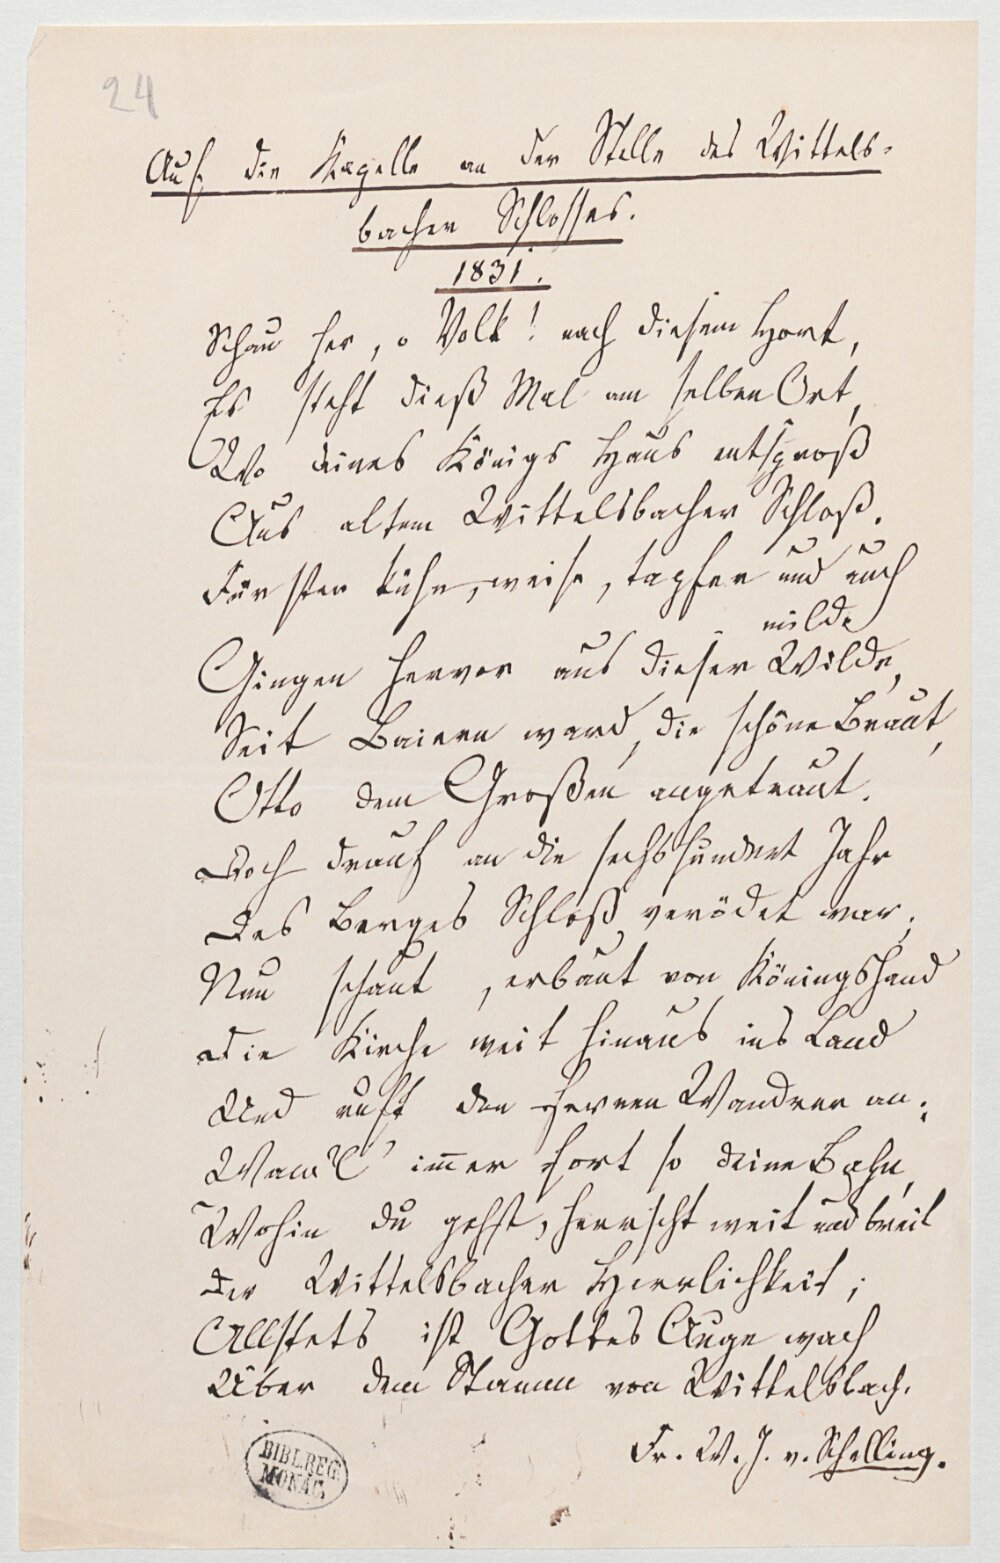 24
Auf die Kapelle an der Stelle des Wittels-
bacher Schlosses.
1831.
Schau her, o Volk! nach diesem Hort,
Es steht dieß Mal am selben Ort,
Wo deines Königs Haus entsproß
Aus altem Wittelsbacher Schloß.
Fürsten kühn, weise, tapfer und auch
milde
Gingen hervor aus dieser Wilde,
Seit Baiern ward, die schöne Braut,
Otto dem Großen angetraut.
Doch drauf an die sechshundert Jahr
Des Berges Schloß verödet war;
Nun schaut, erbaut von Königshand
Die Kirche weit hinaus ins Land
Und ruft den Wandrer an:
Wandl' immer fort so deine Bahn,
Wohin du gehst, herrscht weit und breit
Der Wittelsbacher Herrlichkeit;
Allstets ist Gottes Auge wach
Über dem Stamm von Wittelsbach.
Fr. W. J. v. Schelling.
BIBL. REG.
MONAC.